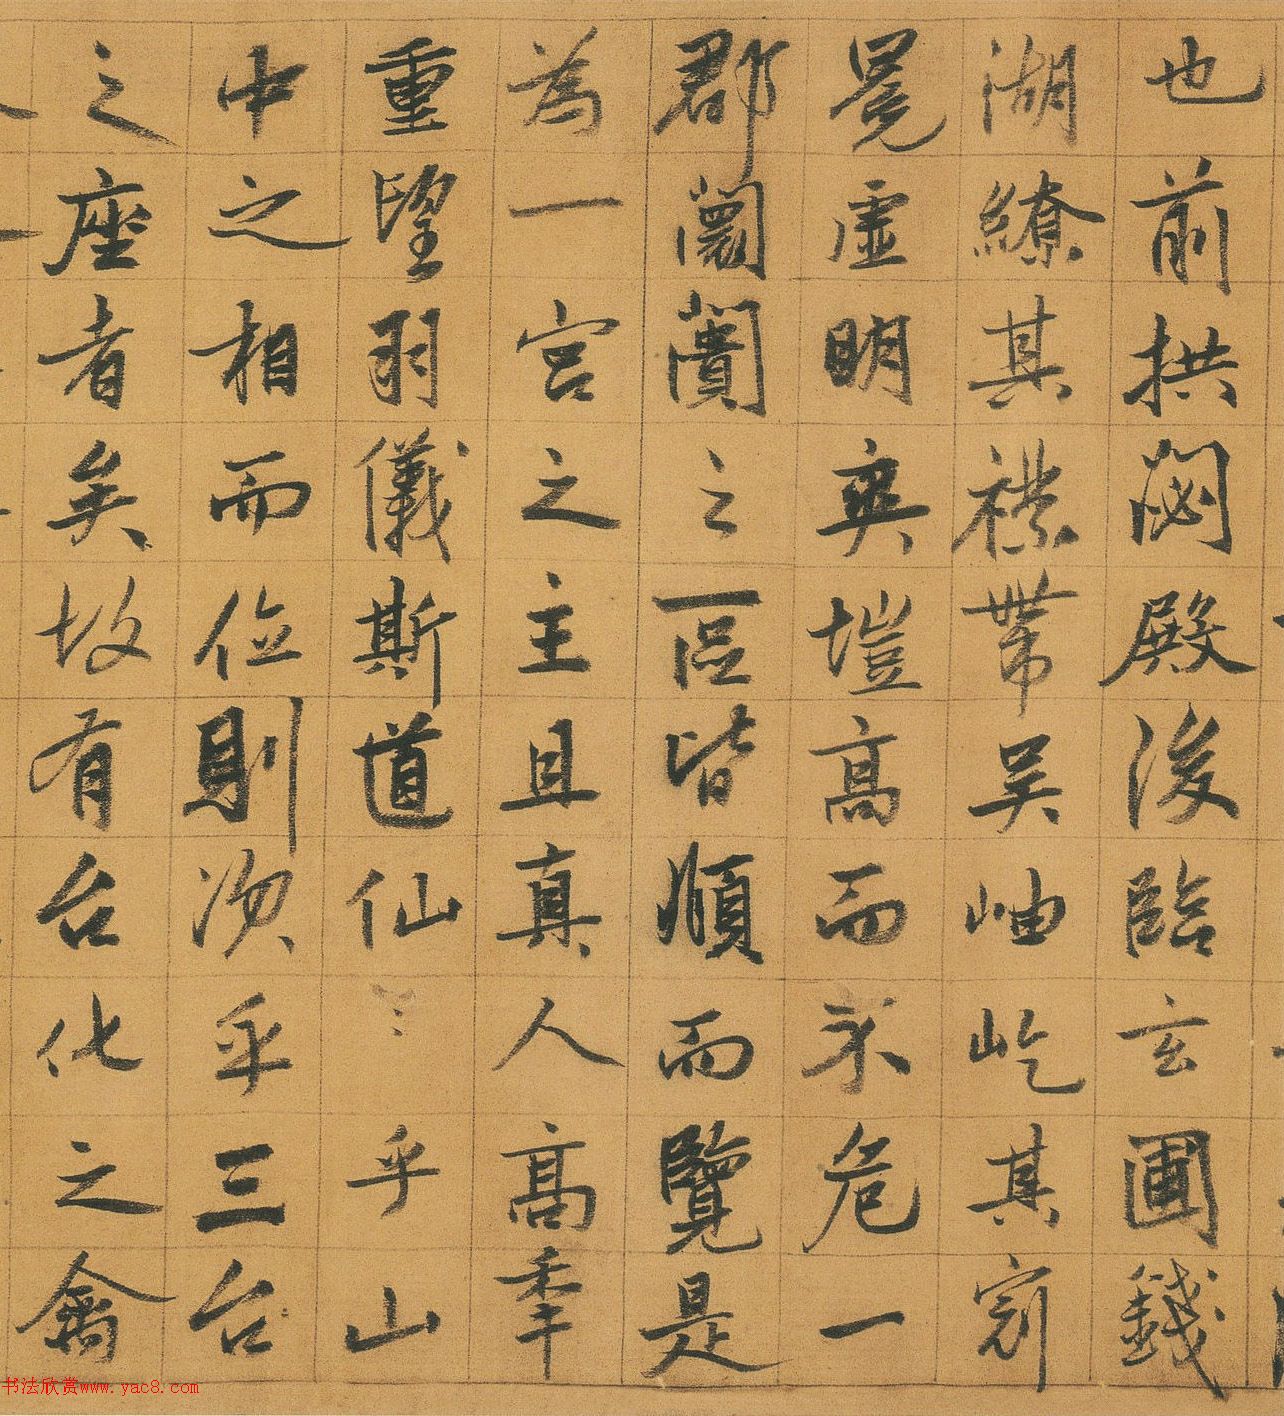 也前拱閟殿後臨玄圃錢
湖繚其襟帶吳岫屹其冠
冕虛明爽塏高而不危一
郡闤闠之區皆順而覽是
為一宮之主且真人高年
重望羽儀斯道仙〻乎山
中之相而位則次乎三台
之座者矣故有台化之禽
书法欣赏www.yac8.com